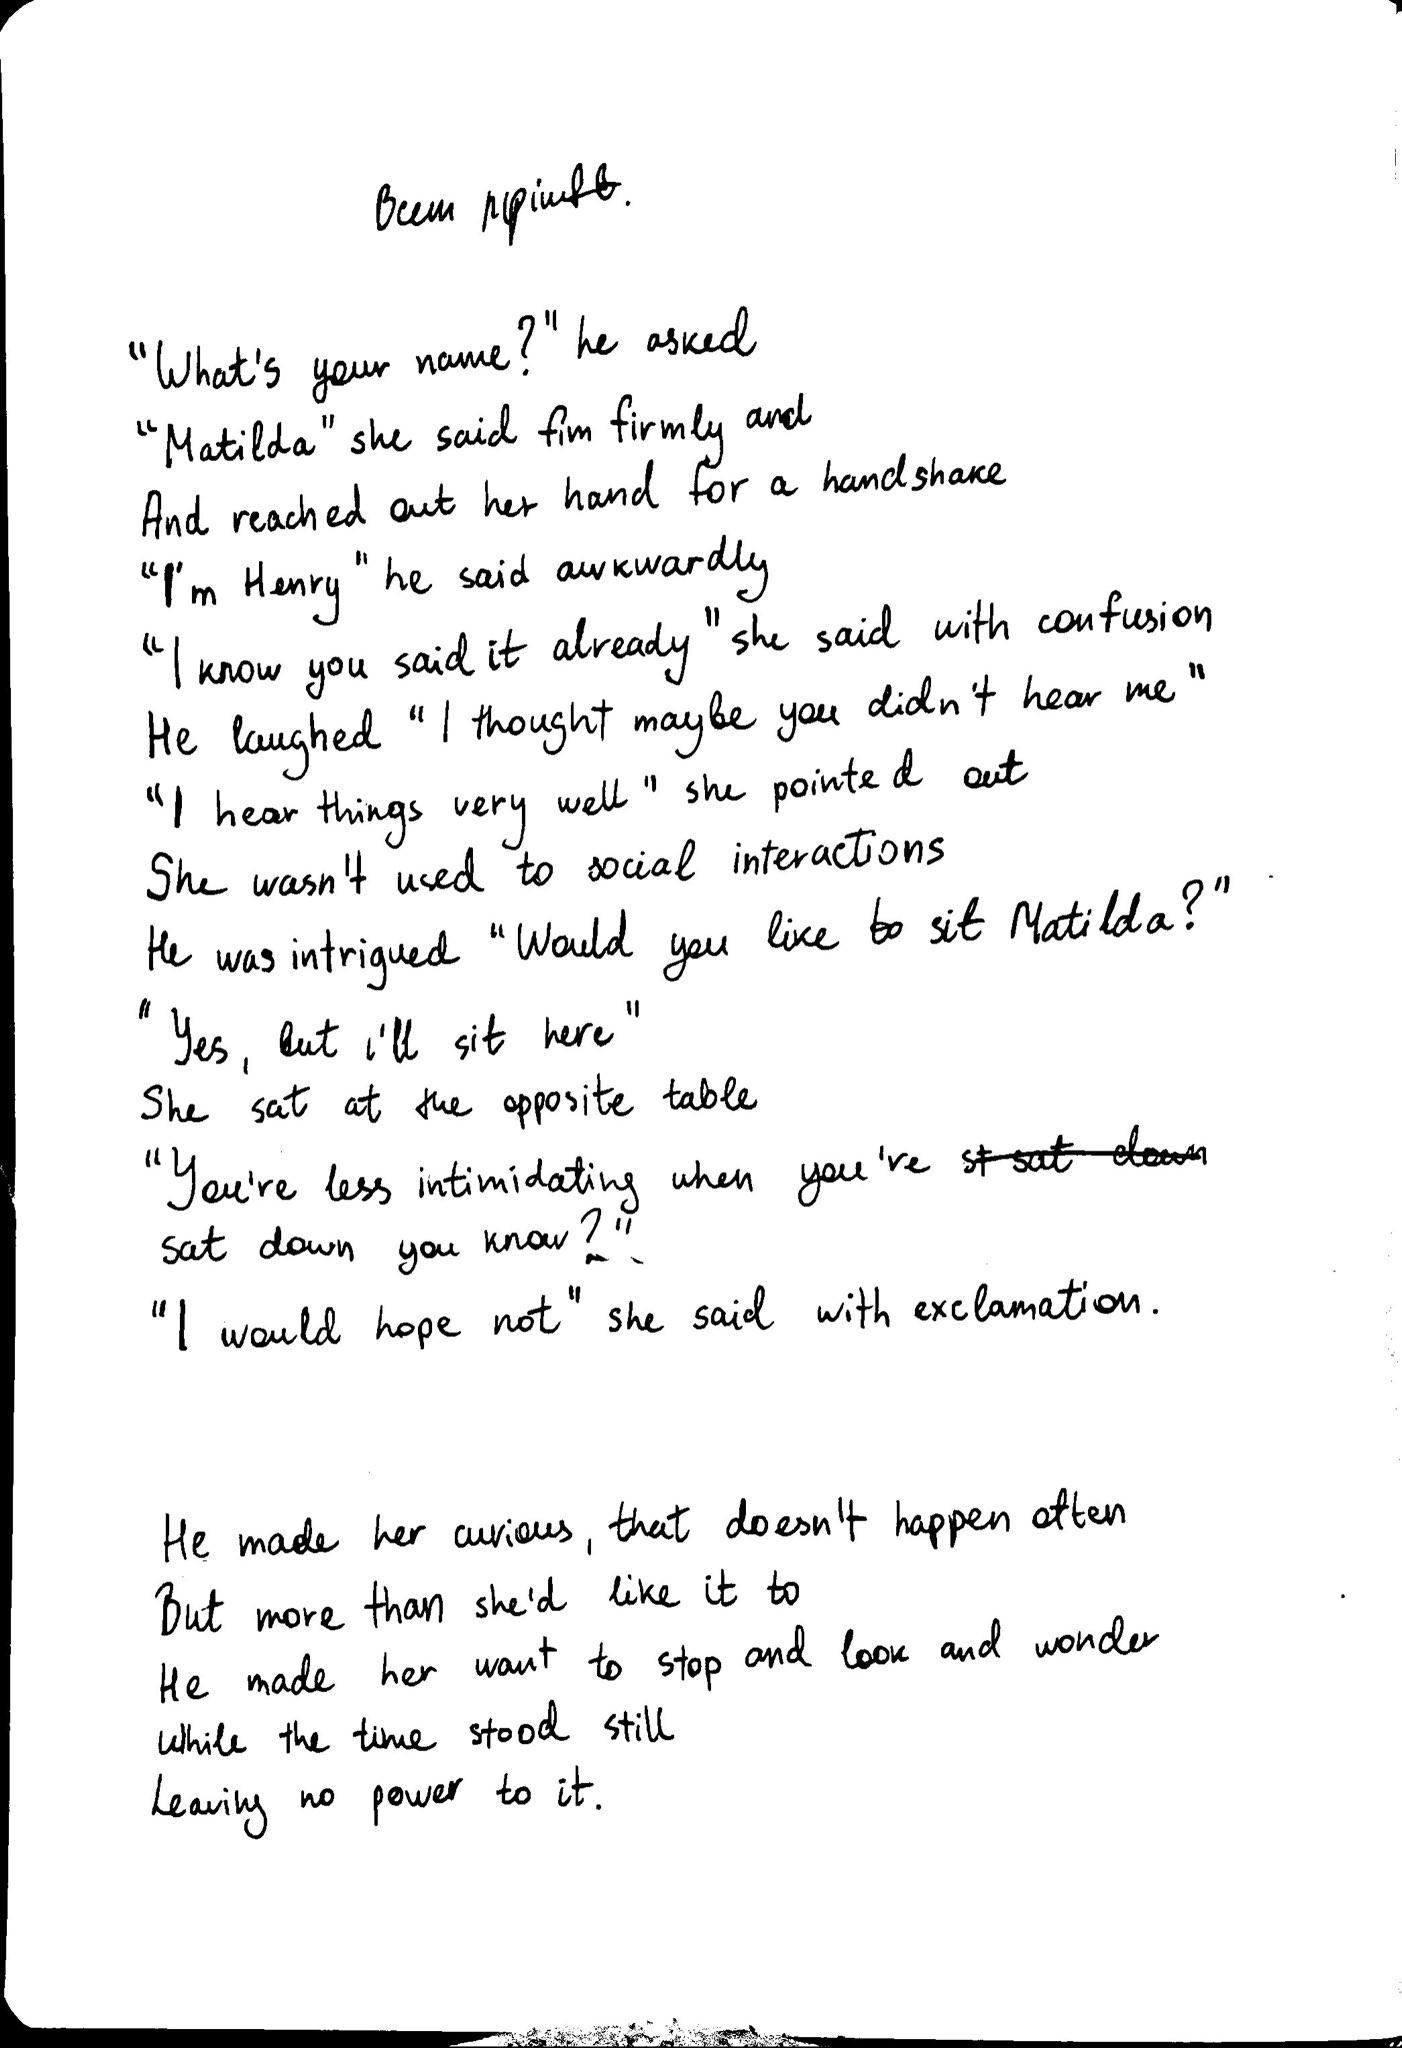 Всем привет.
"What's your name?" he asked
"Matilda" she said fim firmly and
And reached out her hand for a handshake
"I'm Henry" he said awkwardly
"I know you said it already" she said with confusion
He laughed "I thought maybe you didn't hear me"
"I hear things very well" she pointed out
She wasn't used to social interactions
He was intrigued "Would you like to sit Matilda?"
"Yes, but i'll sit here"
She sat at the opposite table
"You're less intimidating when you're st sat down
sat down you know?"
"I would hope not" she said with exclamation.
He made her curious, that doesn't happen often
But more than she'd like it to
He made her want to stop and look and wonder
While the time stood still
Leaving no power to it.